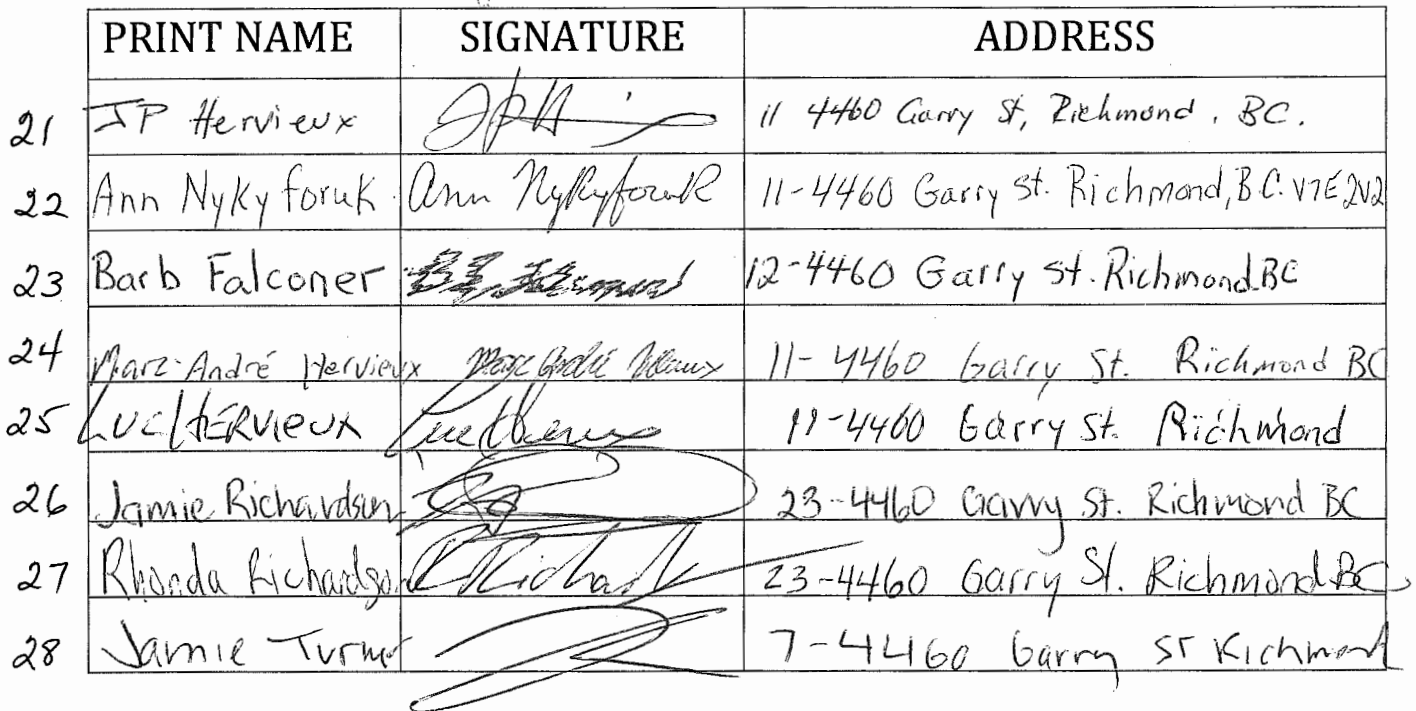 PRINT NAME SIGNATURE ADDRESS
21 JP Hervieux JPH 11 4460 Garry St, Richmond, BC.
22 Ann Nykyforuk Ann Nykyforuk 11-4460 Garry St. Richmond, B.C. V7E 2V2
23 Barb Falconer 12-4460 Garry St. Richmond BC
24 Marc-André Hervieux 11-4460 Garry St. Richmond BC
25 Luc HERVIEUX 11-4460 Garry St. Richmond
26 Jamie Richardson 23-4460 Garry St. Richmond BC
27 Rhonda Richardson 23-4460 Garry St. Richmond BC
28 Jamie Turner 7-4460 Garry ST Richmond